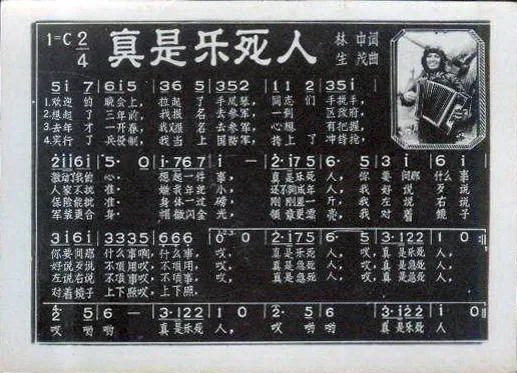 1=C 2/4 真是乐死人 林中词
生茂曲
5 i 7 | 6 i 5 | 3 6 5 | 3 5 2 | 1 1 2 | 3 5 i |
1.欢迎 的 晚会上, 拉起 了 手风琴, 同志 们 手挽手,
2.想起 了 三年前, 我报 名 去参军, 一到 区政府,
3.去年 才 一开春, 又报 名 去参军, 心想 有把握,
4.实行 了 兵役制, 我当 上 国防军, 挎上 了 冲锋枪,
2 i i 6 i | 5· 0 | i· 7 6 7 | i — | 2· i 7 5 | 6· 5 | 3 i | 6 i |
激动了我的 心· 想起一件 事, 真是乐死 人, 你 要 问那 什么 事
人家不批 准· 嫌我年 小, 人, 我 好 说 歹 说
保险能批 准· 身体一过 磅, 人, 我 左 说 右 说
军装更合 身· 帽徽闪金 光, 我 对 着 镜 子
3 i 6 i | 3 3 3 5 | 6 6 6 | 0 0 | 2· i 7 5 | 6· 5 | 3· i 2 2 | 1 0 :||
你要 问那 什么事啊, 什么事, 哎, 真是乐死 人, 哎, 真是乐死 人,
好说 歹说 不顶用, 不顶用, 哎, 真是急死 人, 哎, 真是急死 人,
左说 右说 不顶事, 不顶事, 哎, 真是急死 人, 哎, 真是急死 人,
对着 镜子 上下照, 上下照, 哎, 真是乐死 人, 哎, 真是乐死 人,
2 5 | 6 — | 3· i 2 2 | 1 0 | 2 5 | 6 — | 3· i 2 2 | i 0 ||
哎 哟 哟 真是乐死 人, 哎 哟 哟 真是乐死 人